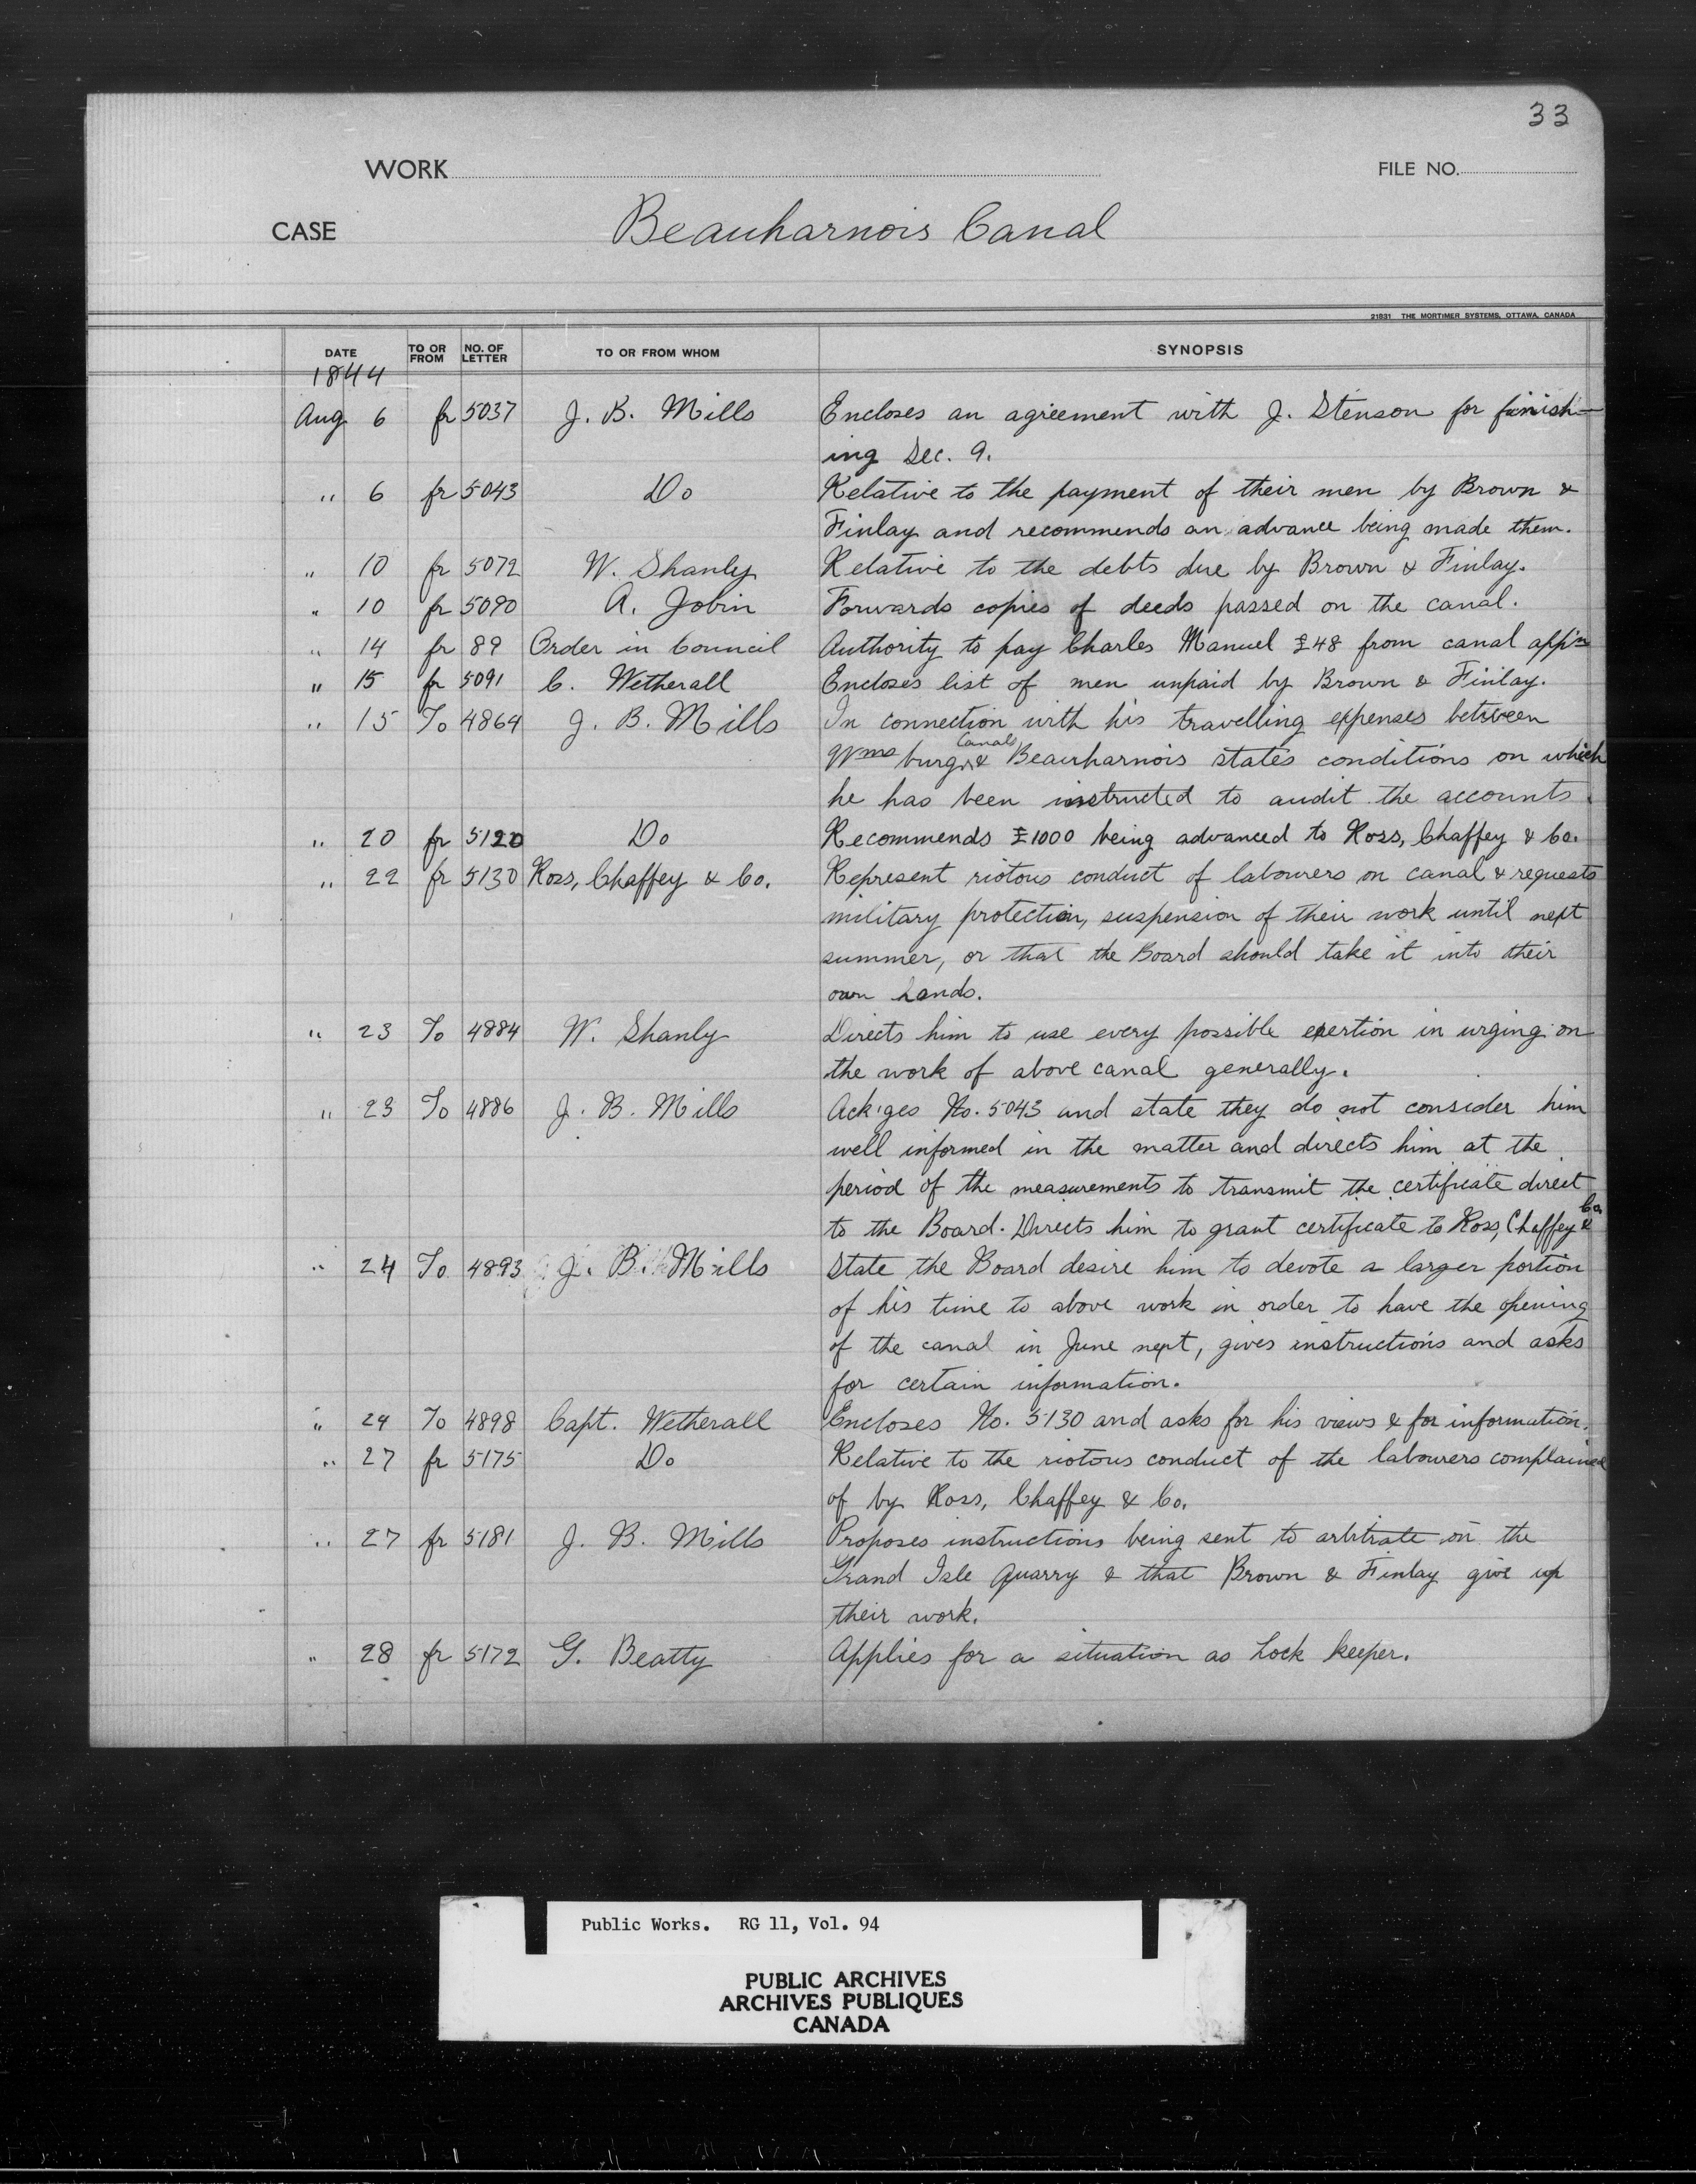 33
WORK
FILE NO.
CASE Beauharnois Canal
21831 THE MORTIMER SYSTEMS, OTTAWA, CANADA
DATE TO OR FROM NO. OF LETTER TO OR FROM WHOM SYNOPSIS
1844
Aug 6 fr 5037 J. B. Mills Encloses an agreement with J. Stenson for finish-
ing Sec. 9.
" 6 fr 5043 Do Relative to the payment of their men by Brown &
Finlay and recommends an advance being made them.
" 10 fr 5072 W. Shanly Relative to the debts due by Brown & Finlay.
" 10 fr 5090 A. Jobin Forwards copies of deeds passed on the canal.
" 14 fr 89 Order in Council Authority to pay Charles Manuel £48 from canal app'n
" 15 fr 5091 C. Wetherall Encloses list of men unpaid by Brown & Finlay.
" 15 To 4864 J. B. Mills In connection with his travelling expenses between
Wms burg & Beauharnois Canals states conditions on which
he has been instructed to audit the accounts.
" 20 fr 5120 Do Recommends £1000 being advanced to Ross, Chaffey & Co.
" 22 fr 5130 Ross, Chaffey & Co. Represent riotous conduct of labourers on canal & requests
military protection, suspension of their work until next
summer, or that the Board should take it into their
own hands.
" 23 To 4884 W. Shanly Directs him to use every possible exertion in urging on
the work of above canal generally.
" 23 To 4886 J. B. Mills Ack'ges No. 5043 and state they do not consider him
well informed in the matter and directs him at the
period of the measurements to transmit the certificate direct
to the Board. Directs him to grant certificate to Ross, Chaffey & Co.
" 24 To 4893 J. B. Mills State the Board desire him to devote a larger portion
of his time to above work in order to have the opening
of the canal in June next, gives instructions and asks
for certain information.
" 24 To 4898 Capt. Wetherall Encloses No. 5130 and asks for his views & for information.
" 27 fr 5175 Do Relative to the riotous conduct of the labourers complained
of by Ross, Chaffey & Co.
" 27 fr 5181 J. B. Mills Proposes instructions being sent to arbitrate on the
Grand Isle Quarry & that Brown & Finlay give up
their work.
" 28 fr 5172 G. Beatty Applies for a situation as Lock keeper.
Public Works. RG 11, Vol. 94
PUBLIC ARCHIVES
ARCHIVES PUBLIQUES
CANADA